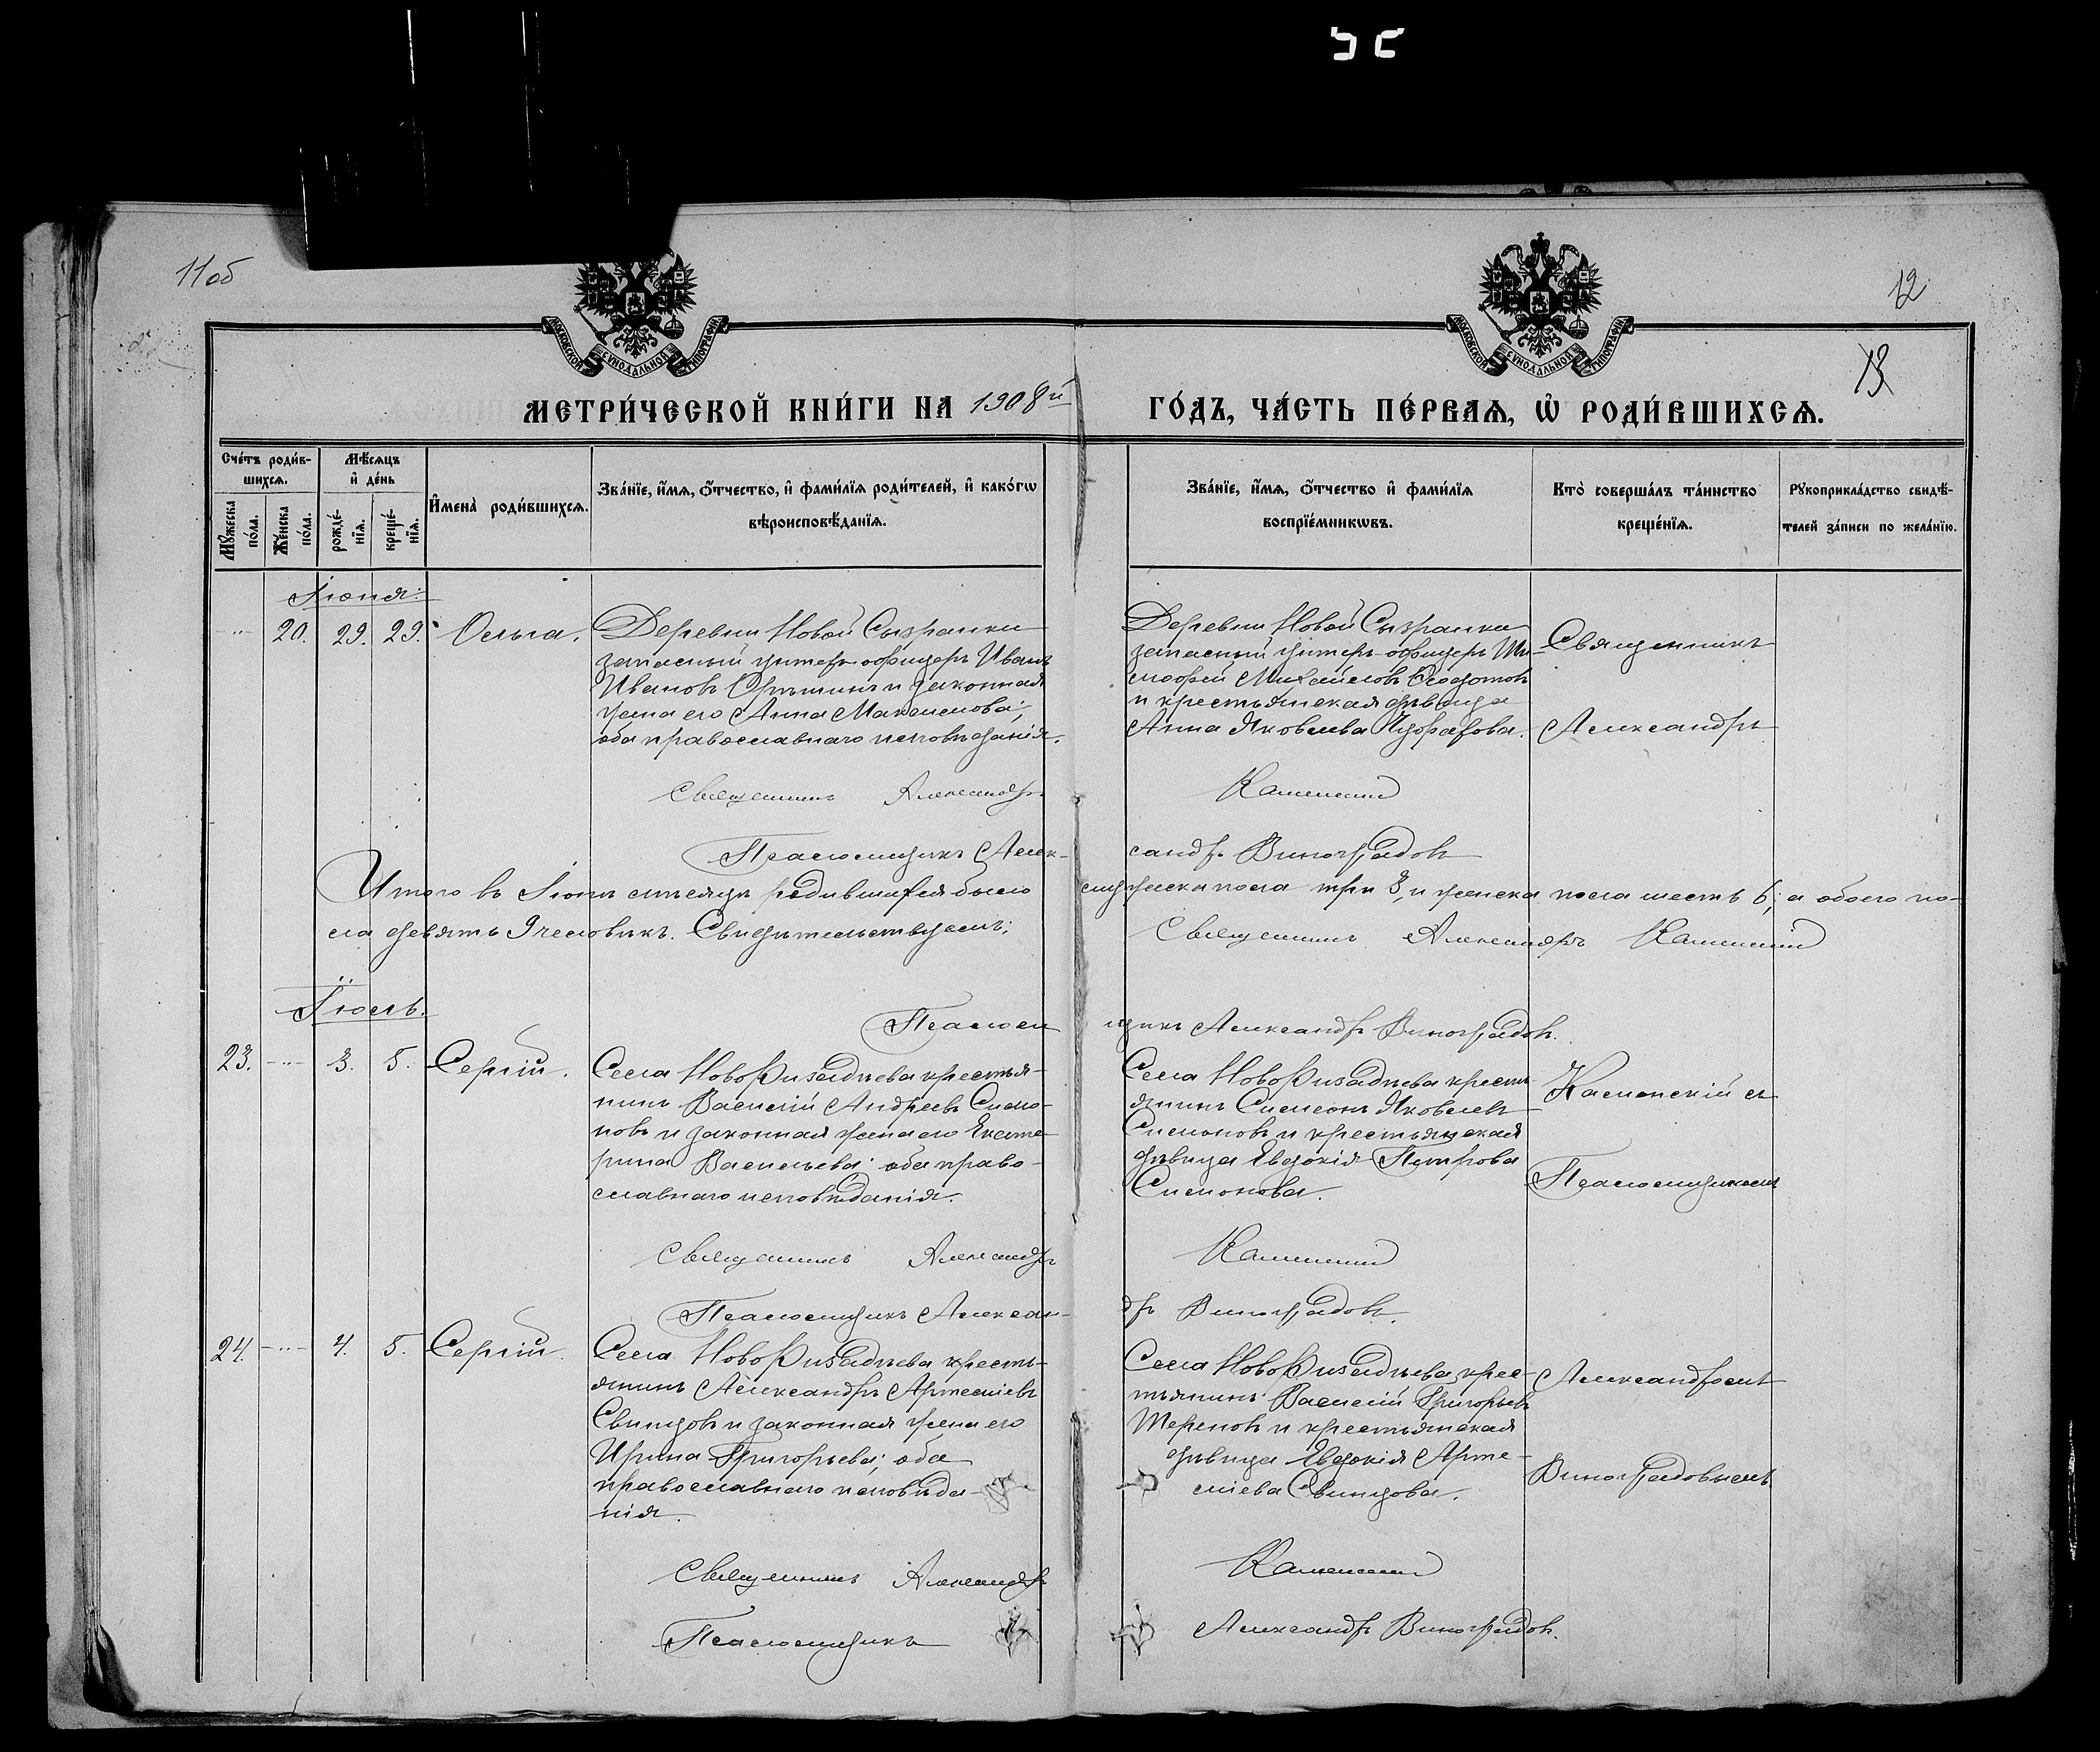 11об
12
13
МОСКОВСКОЙ СѴНОДАЛЬНОЙ ТИПОГРАФІИ
МОСКОВСКОЙ СѴНОДАЛЬНОЙ ТИПОГРАФІИ
МЕТРИ́ЧЕСКОЙ КНИ́ГИ НА 1908й
ГО́ДЪ, ЧА́СТЬ ПЕ́РВАѦ, Ѡ҆ РОДИ́ВШИХСѦ.
Сче́тъ роди́в-
шихсѧ.
Мꙋ́жеска
по́ла.
Же́нска
по́ла.
Мѣ́сѧцъ
и҆ де́нь
рожде́-
нїѧ.
креще́-
нїѧ.
И҆мена̀ роди́вшихсѧ.
Зва́нїе, и҆́мѧ, ѻ҆́тчество, и҆ фами́лїѧ роди́телей, и҆ како́гѡ
вѣроисповѣ́данїѧ.
Зва́нїе, и҆́мѧ, ѻ҆́тчество и҆ фами́лїѧ
воспрїе́мникѡвъ.
Кто̀ соверша́лъ та́инство
креще́нїѧ.
Рꙋкоприкла́дство свидѣ́-
телей за́писи по жела́нїю.
Іюня:
20. 29. 29. Ольга.
Деревни Новой Сызранки
запасный унтеръ-офицеръ Иванъ
Ивановъ и законная
жена его Анна Максимова;
оба православнаго исповѣданія.
Деревни Новой Сызранки
запасный унтеръ-офицеръ Ти-
мофей Михайловъ Ѳедотовъ
и крестьянская дѣвица
Анна Яковлева
Священникъ
Александръ
Священникъ Александръ Каменскій
Псаломщикъ Алек-
сандръ Виноградовъ
Итого въ Іюнѣ мѣсяцѣ родившихся было мужеска пола три 3, и женска пола шесть 6; а обоего по-
ла девять 9 человѣкъ. Свидѣтельствуемъ; Священникъ Александръ Каменскій
Іюль.
Псалом
щикъ Александръ Виноградовъ.
23. 3. 5. Сергій.
Села крестья-
нинъ Василій Андреевъ Симо-
новъ и законная жена его Екате-
рина Васильева; оба право-
славнаго исповѣданія.
Села крестья
янинъ Симеонъ Яковлевъ
Симоновъ и крестьянская
дѣвица Евдокія Петрова
Симонова.
Каменскій съ
Псаломщикомъ
Священникъ Александръ Каменскій
Псаломщикъ Алексан-
дръ Виноградовъ.
24. 4. 5. Сергій.
Села кресть-
янинъ Александръ Артемьевъ
Свинцовъ и законная жена его
Ирина Григорьева; оба
православнаго исповѣда-
нія.
Села крес-
тьянинъ Василій Григорьевъ
и крестьянская
дѣвица Евдокія Арте-
міева Свинцова.
Александромъ
Виноградовымъ.
Священникъ Александръ Каменскій
Псаломщикъ Александръ Виноградовъ.